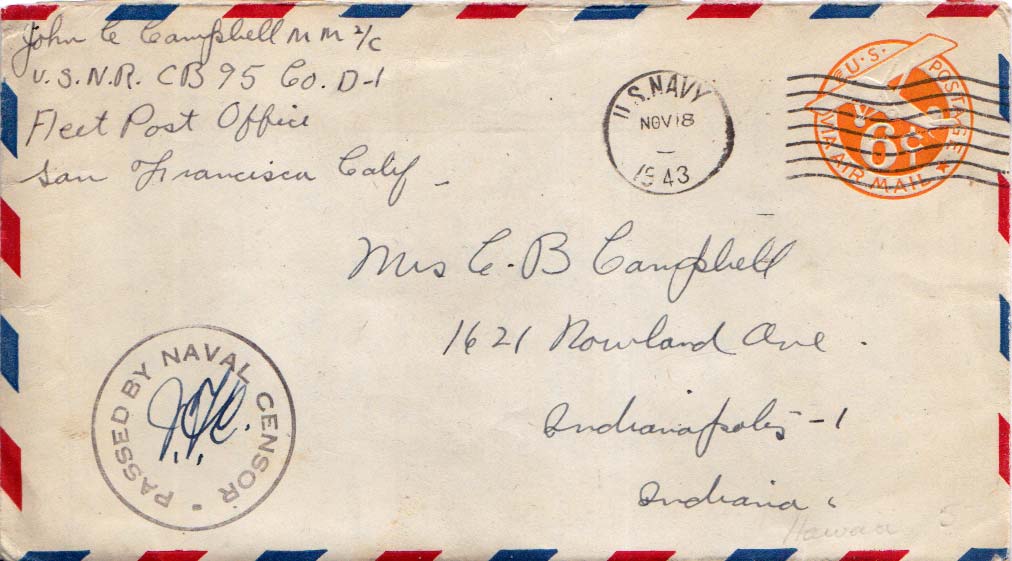 John C Campbell M M 2/c
U.S.N.R. CB 95 Co. D-1
Fleet Post Office
San Francisco Calif
U.S. NAVY
NOV 18
1943
U.S. POSTAGE
6¢
VIA AIR MAIL
Mrs C. B Campbell
1621 Nowland Ave.
Indianapolis -1
Indiana
PASSED BY NAVAL CENSOR
Hawaii 5